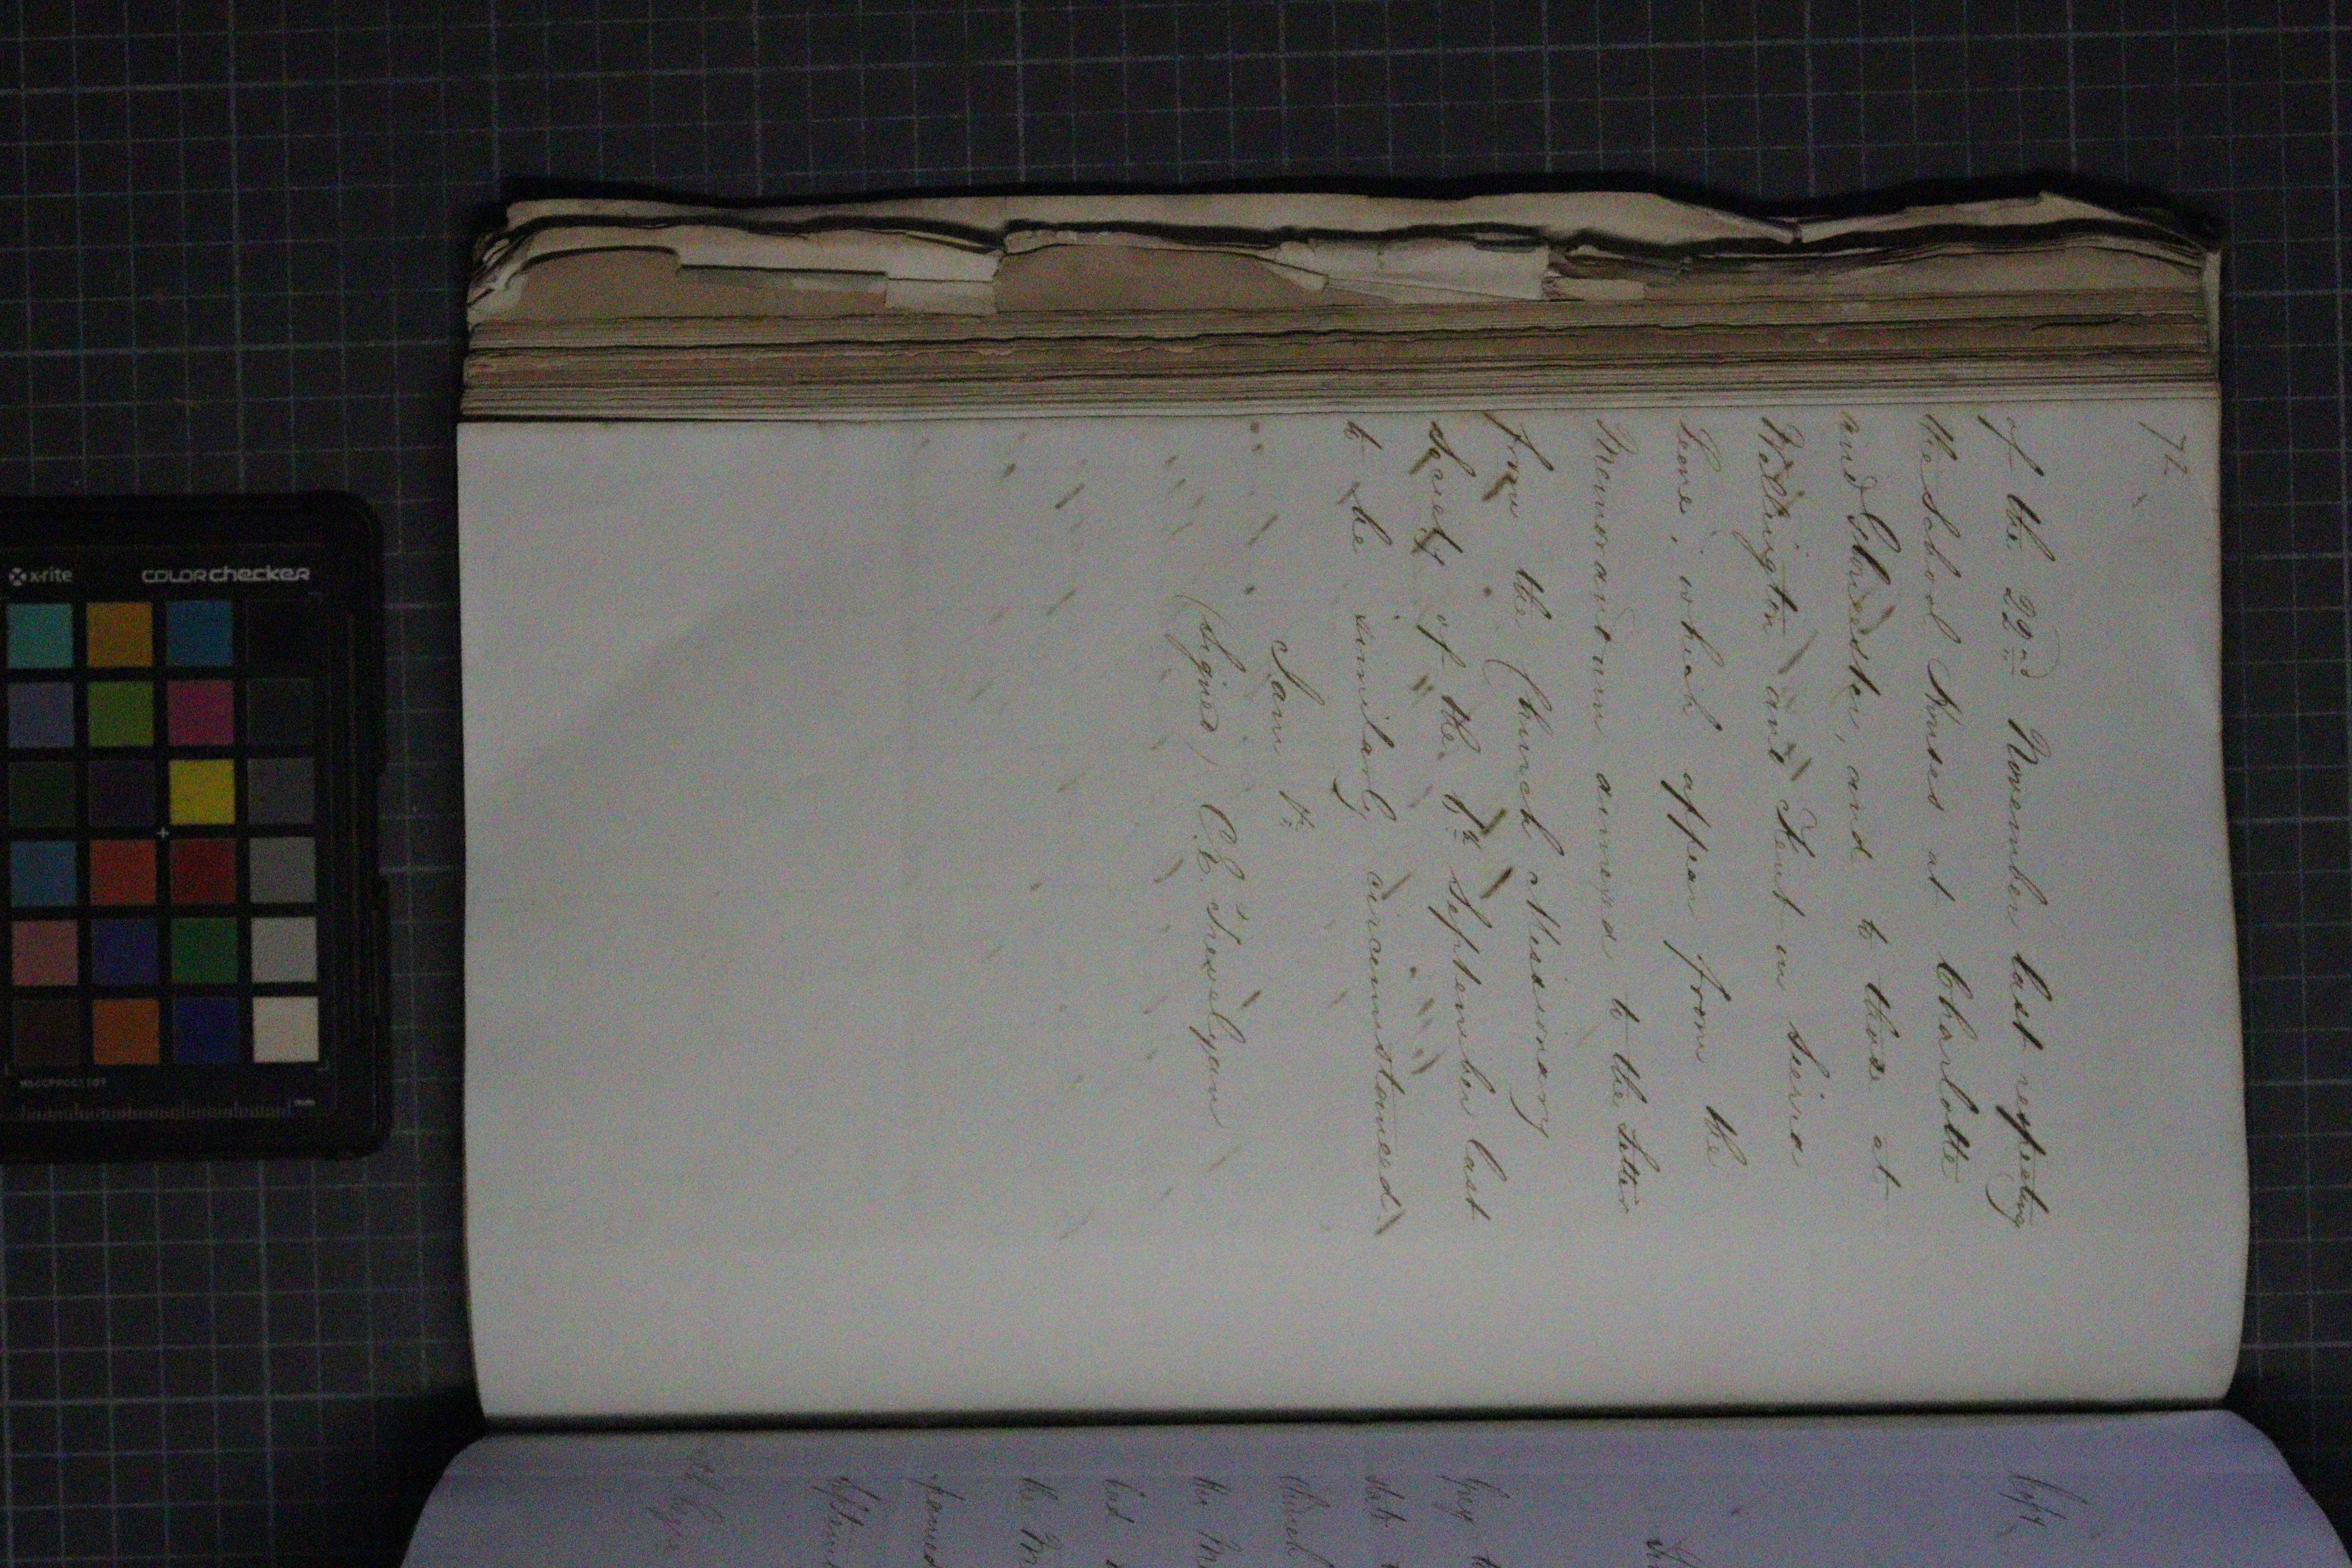 72
of the 22nd November last respecting
the School Houses at Charlotte
and Gloucester, and to those at
Wellington and Kent in Seirra
Leone, which appear from the
Memorandum annexed to the Letter
from the Church Missionary
Society of the 8th September last
to be similarly circumstanced.
I am &c
(Signed) C. E. Trevelyan
Copy
beg to
state
Church
the
the
x-rite colorchecker